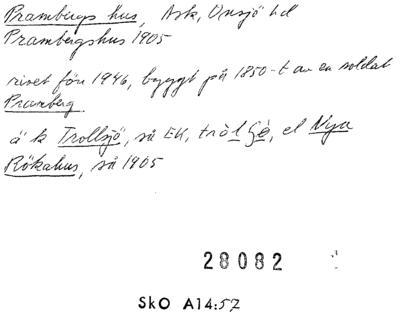 Prambergs hus, Ask, Onsjö hd
Prambergshus 1905
rivet före 1946, byggt på 1850-t av en soldat
Pramberg.
ä k Trollsjö, så EK, el Nya
Rökahus, så 1905
28082
SkO A14:57